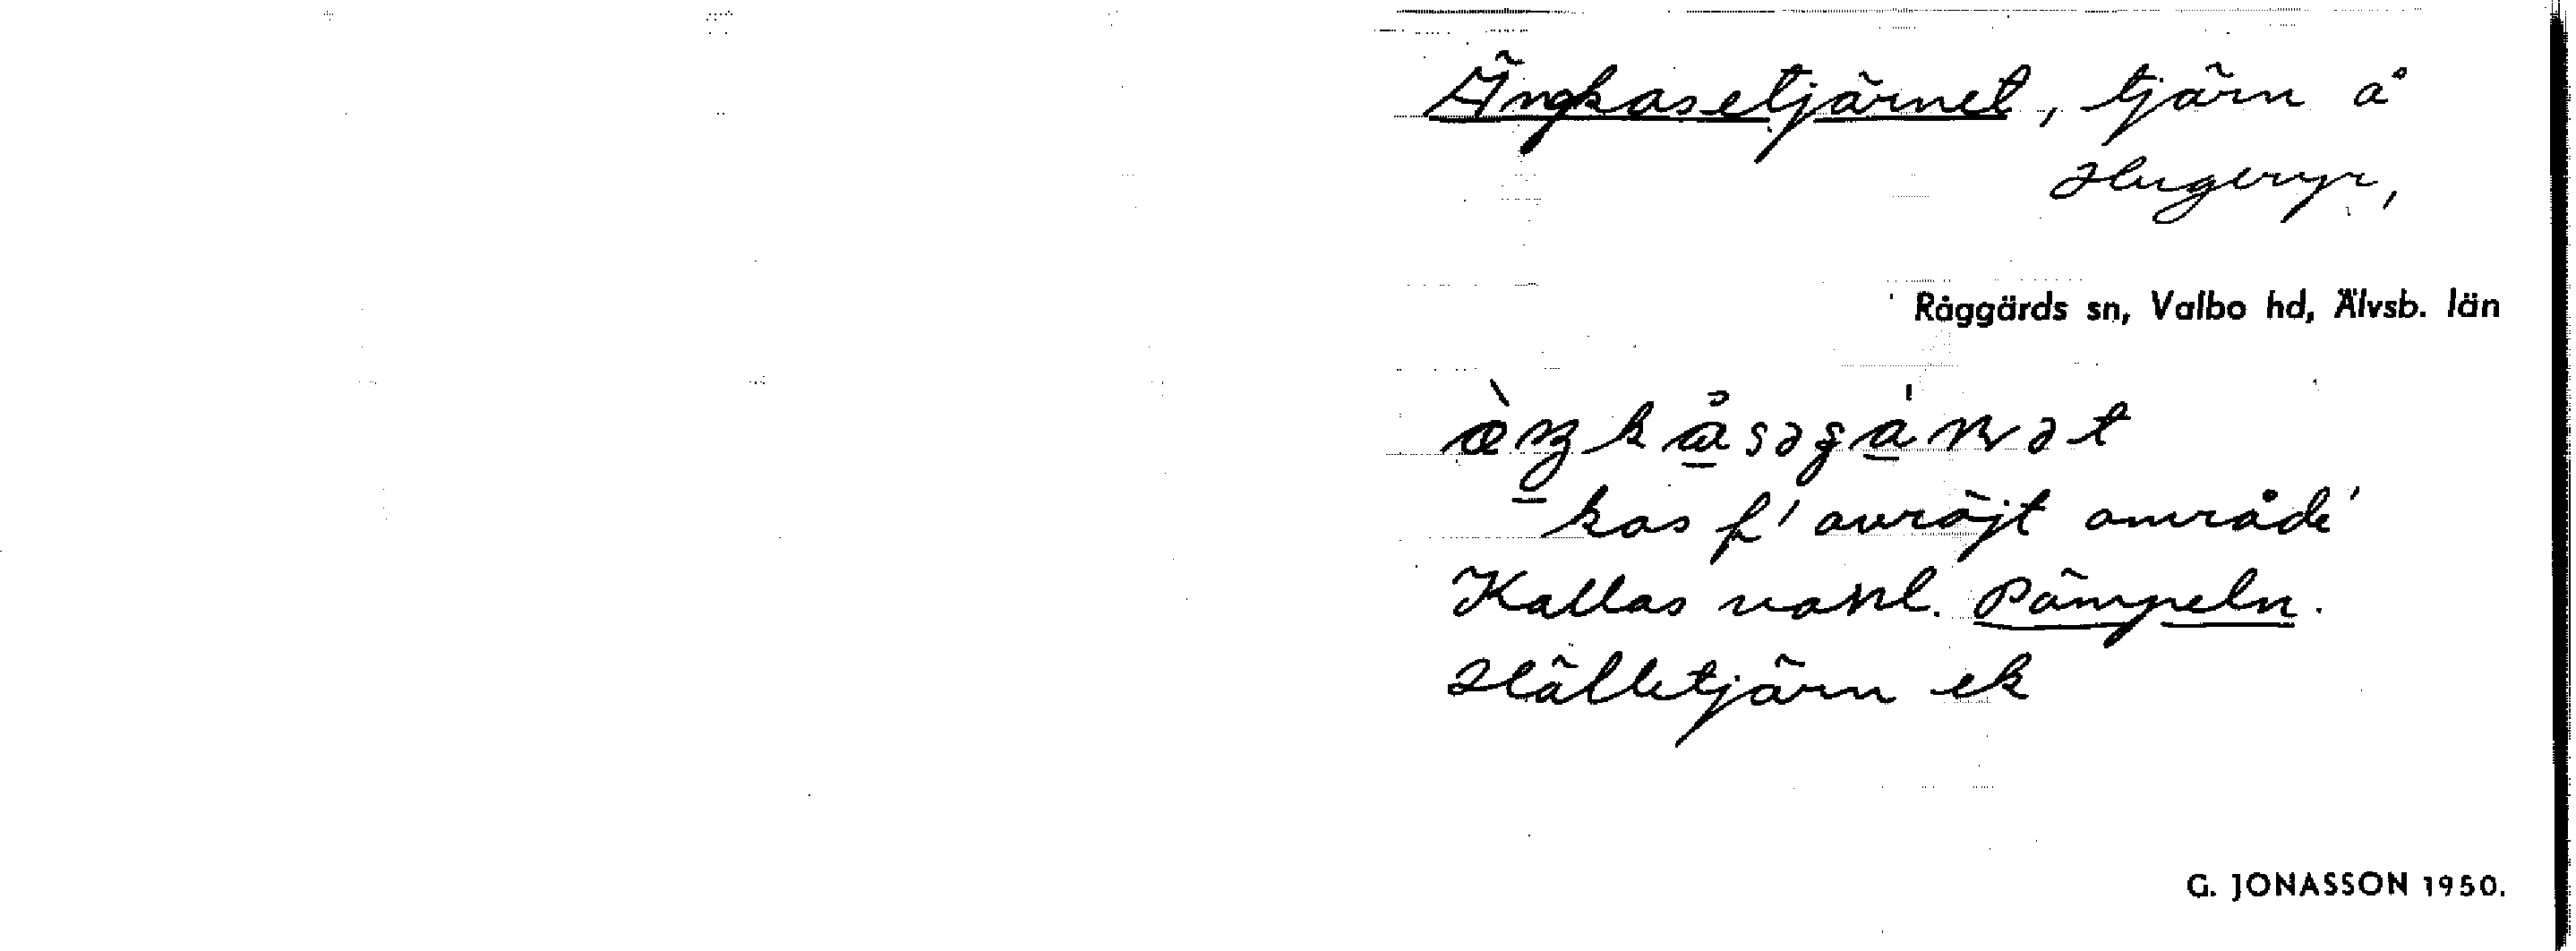 Ängkasetjärnet, tjärn å
Hugeryr,
Råggärds sn, Valbo hd, Älvsb. län
kas f' avröjt område'
Kallas vanl. Pämpeln.
Hälletjärn ek
G. JONASSON 1950.